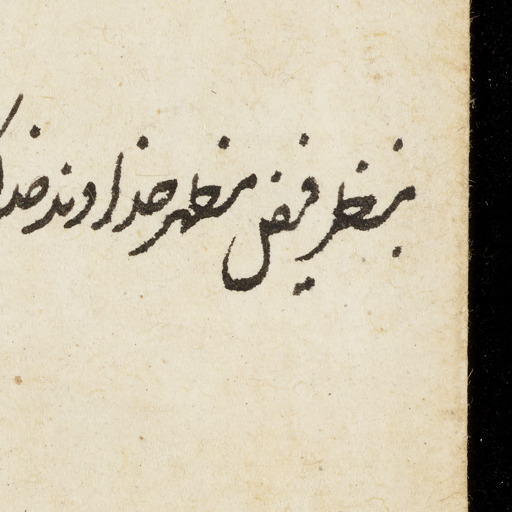 بنظر فیض مظهر خداوند خدا